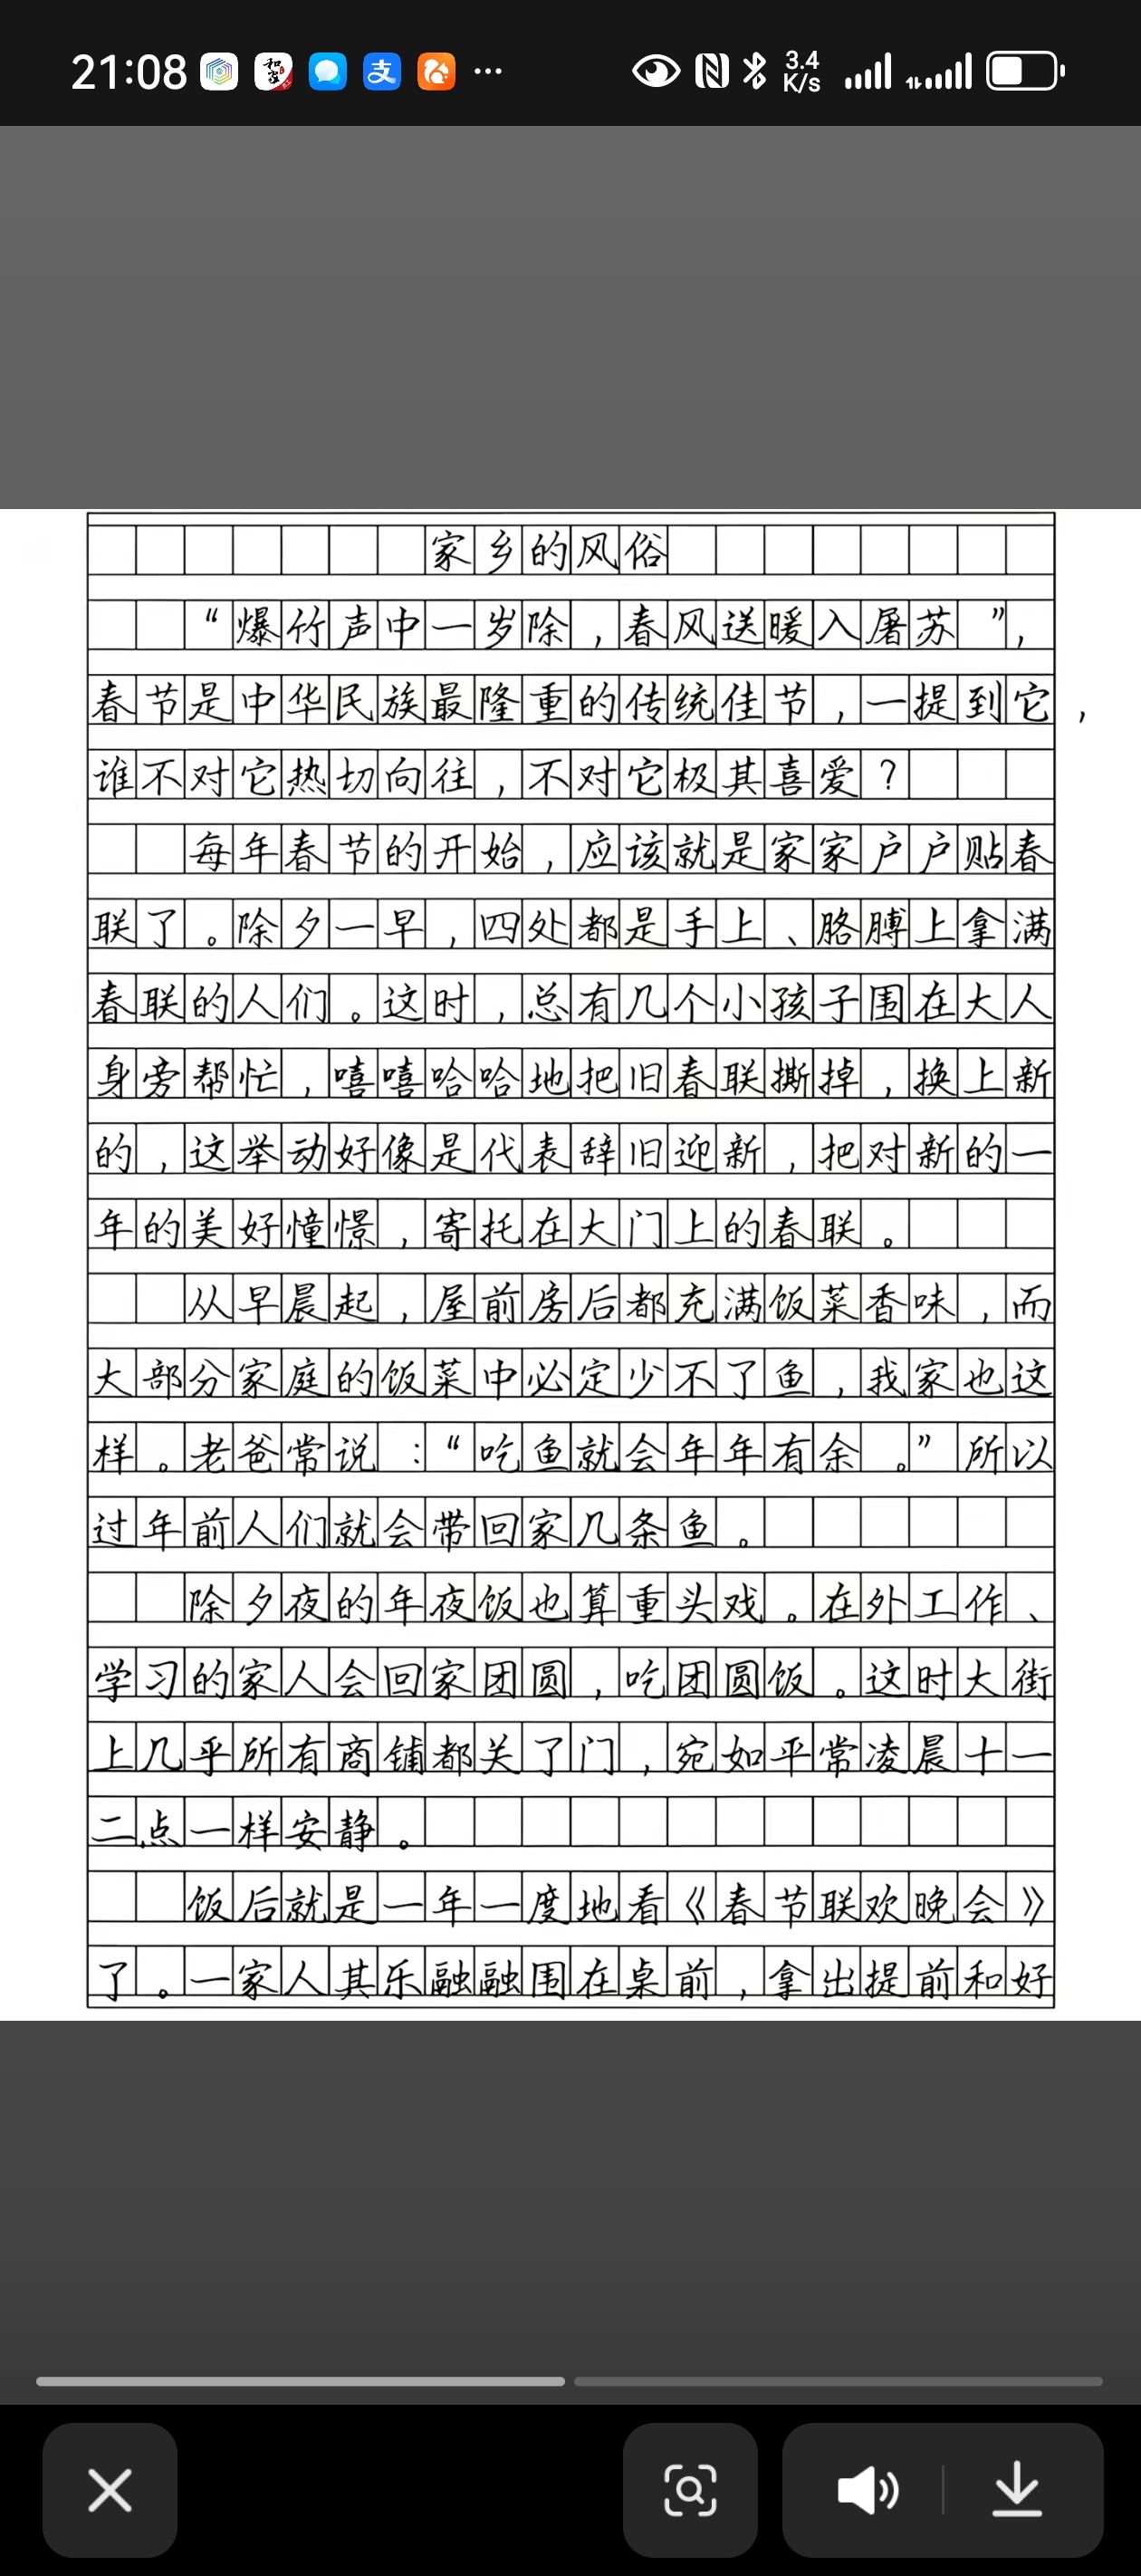 21:08 和家 支 ... 3.4 K/s
家乡的风俗
“爆竹声中一岁除，春风送暖入屠苏”，
春节是中华民族最隆重的传统佳节，一提到它，
谁不对它热切向往，不对它极其喜爱？
每年春节的开始，应该就是家家户户贴春
联了。除夕一早，四处都是手上、胳膊上拿满
春联的人们。这时，总有几个小孩子围在大人
身旁帮忙，嘻嘻哈哈地把旧春联撕掉，换上新
的，这举动好像是代表辞旧迎新，把对新的一
年的美好憧憬，寄托在大门上的春联。
从早晨起，屋前房后都充满饭菜香味，而
大部分家庭的饭菜中必定少不了鱼，我家也这
样。老爸常说：“吃鱼就会年年有余。”所以
过年前人们就会带回家几条鱼。
除夕夜的年夜饭也算重头戏。在外工作、
学习的家人会回家团圆，吃团圆饭。这时大街
上几乎所有商铺都关了门，宛如平常凌晨十一
二点一样安静。
饭后就是一年一度地看《春节联欢晚会》
了。一家人其乐融融围在桌前，拿出提前和好